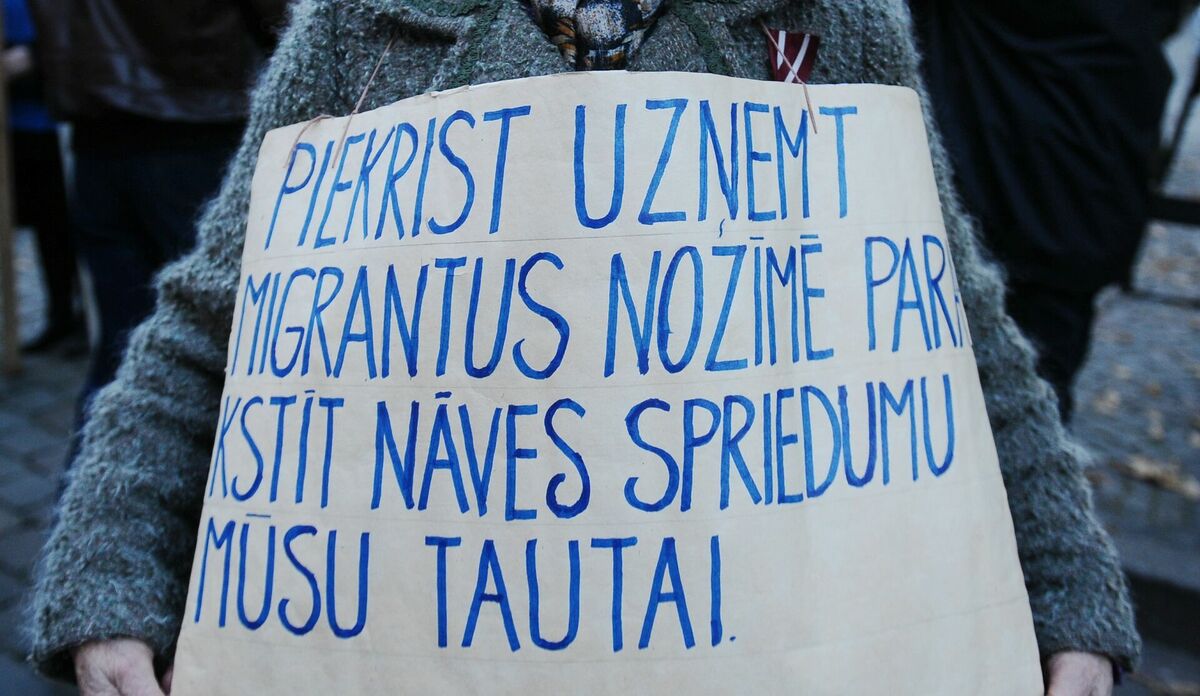 PIEKRIST UZŅEMT
MIGRANTUS NOZĪMĒ PARA
KSTĪT NĀVES SPRIEDUMU
MŪSU TAUTAI.